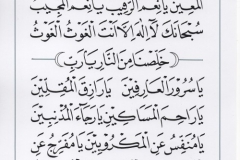 المعين يا نعم الرقيب يا نعم المجيب
سبحانك لا اله الا انت الغوث الغوث
خلصنا من النار يا رب
يا سرور العارفين يا رازق المقلين
يا راحم المساكين يا رجاء المذنبين
يا منفس عن المكروبين يا مفرج عن